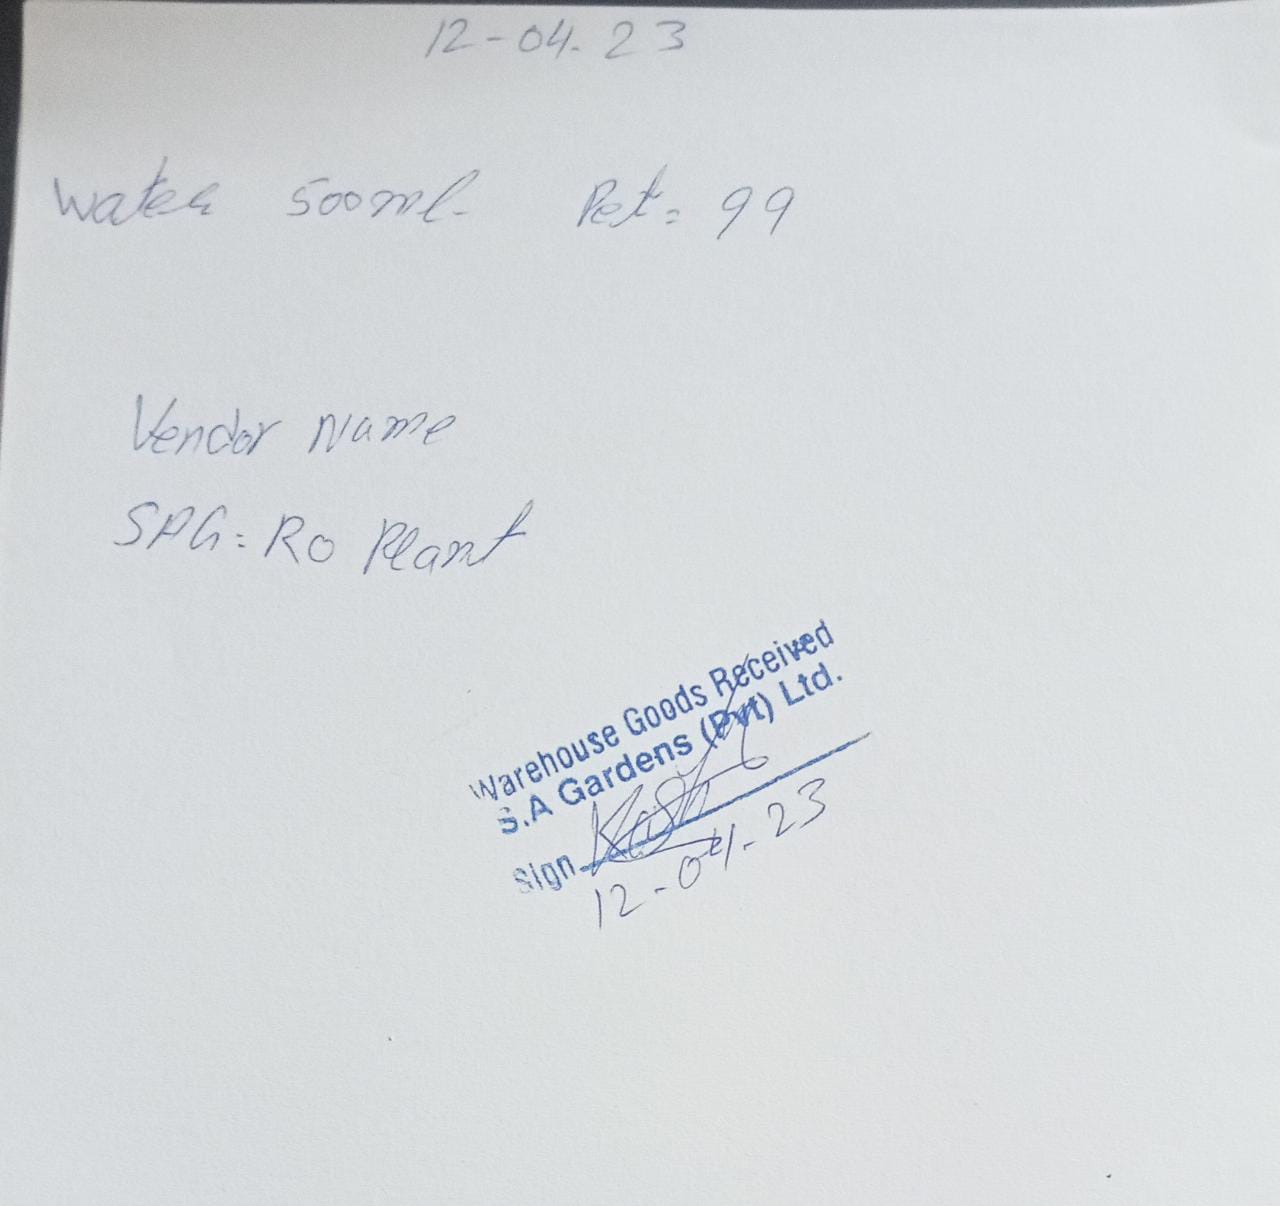 12-04-23
Water 500ml- Pet= 99
Vendor Name
SPG= RO Plant
Warehouse Goods Received
S.A Gardens (Pvt) Ltd.
Sign
12-04-23